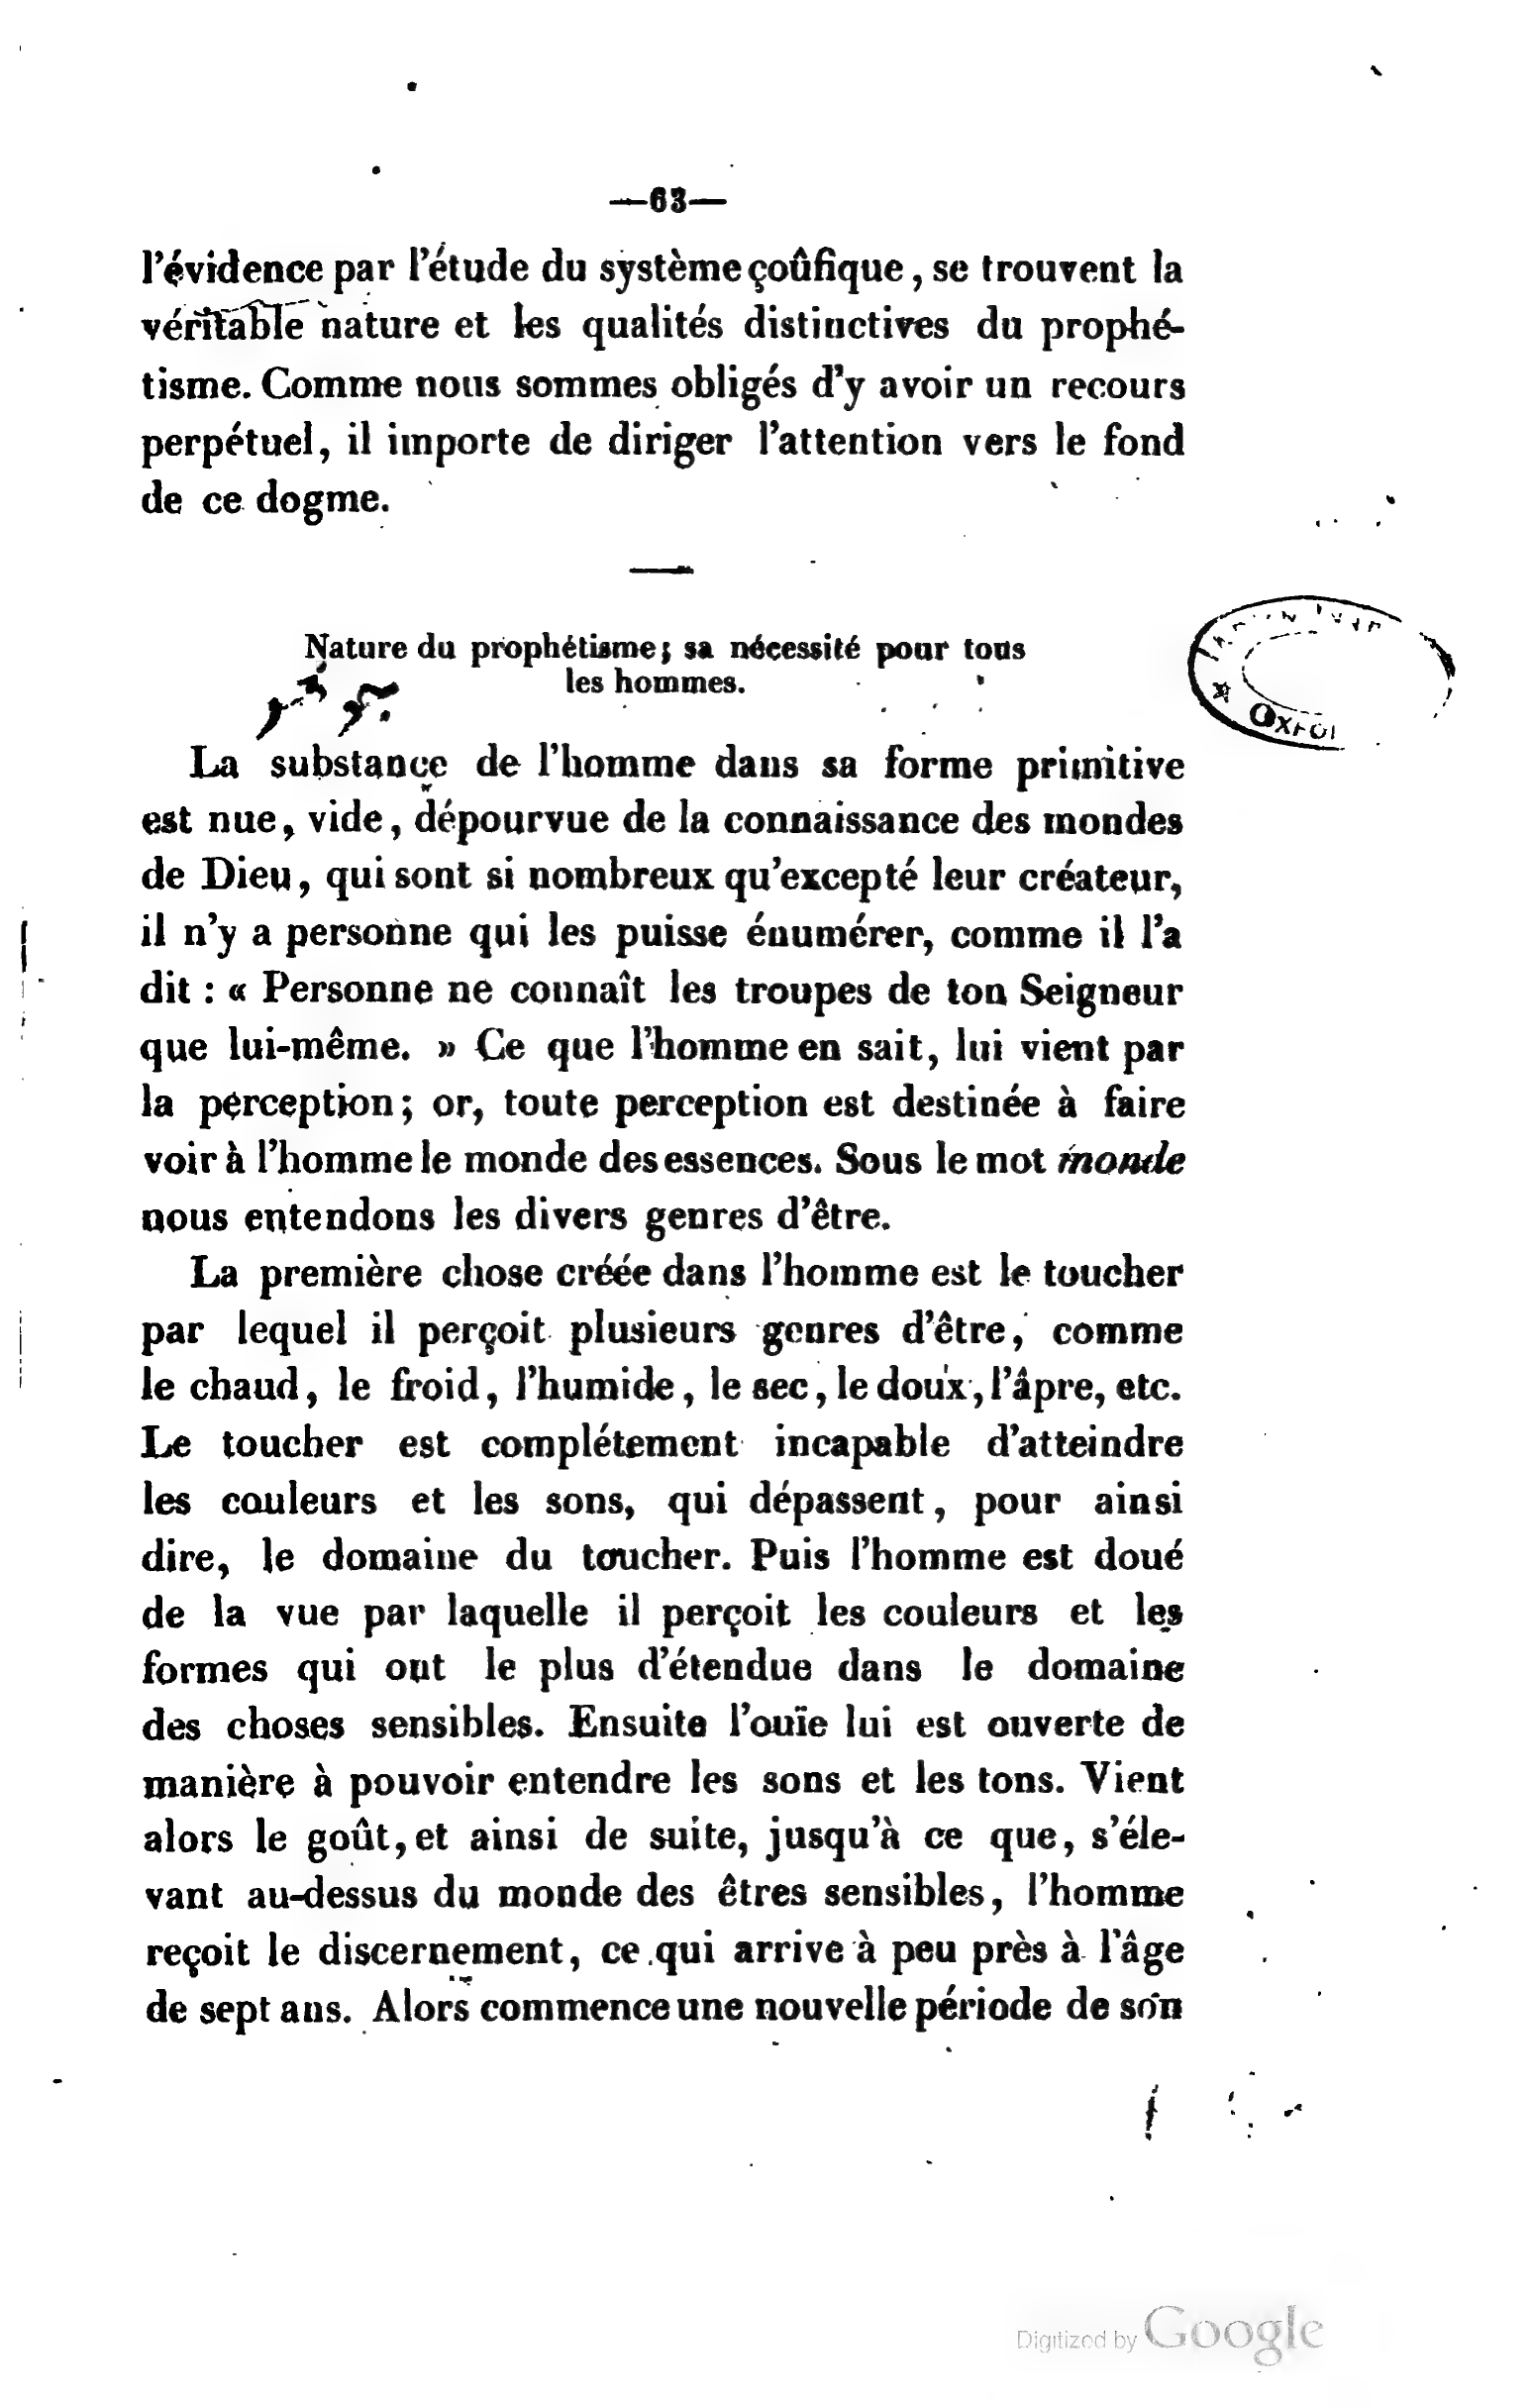 —63—
l'évidence par l'étude du système çoûfique, se trouvent la
véritable nature et les qualités distinctives du prophé-
tisme. Comme nous sommes obligés d'y avoir un recours
perpétuel, il importe de diriger l'attention vers le fond
de ce dogme.
Nature du prophétisme; sa nécessité pour tous
les hommes.
La substance de l'homme dans sa forme primitive
est nue, vide, dépourvue de la connaissance des mondes
de Dieu, qui sont si nombreux qu'excepté leur créateur,
il n'y a personne qui les puisse énumérer, comme il l'a
dit : « Personne ne connaît les troupes de ton Seigneur
que lui-même. » Ce que l'homme en sait, lui vient par
la perception; or, toute perception est destinée à faire
voir à l'homme le monde des essences. Sous le mot monde
nous entendons les divers genres d'être.
La première chose créée dans l'homme est le toucher
par lequel il perçoit plusieurs genres d'être, comme
le chaud, le froid, l'humide, le sec, le doux, l'âpre, etc.
Le toucher est complétement incapable d'atteindre
les couleurs et les sons, qui dépassent, pour ainsi
dire, le domaine du toucher. Puis l'homme est doué
de la vue par laquelle il perçoit les couleurs et les
formes qui ont le plus d'étendue dans le domaine
des choses sensibles. Ensuite l'ouïe lui est ouverte de
manière à pouvoir entendre les sons et les tons. Vient
alors le goût, et ainsi de suite, jusqu'à ce que, s'éle-
vant au-dessus du monde des êtres sensibles, l'homme
reçoit le discernement, ce qui arrive à peu près à l'âge
de sept ans. Alors commence une nouvelle période de son
Digitized by Google